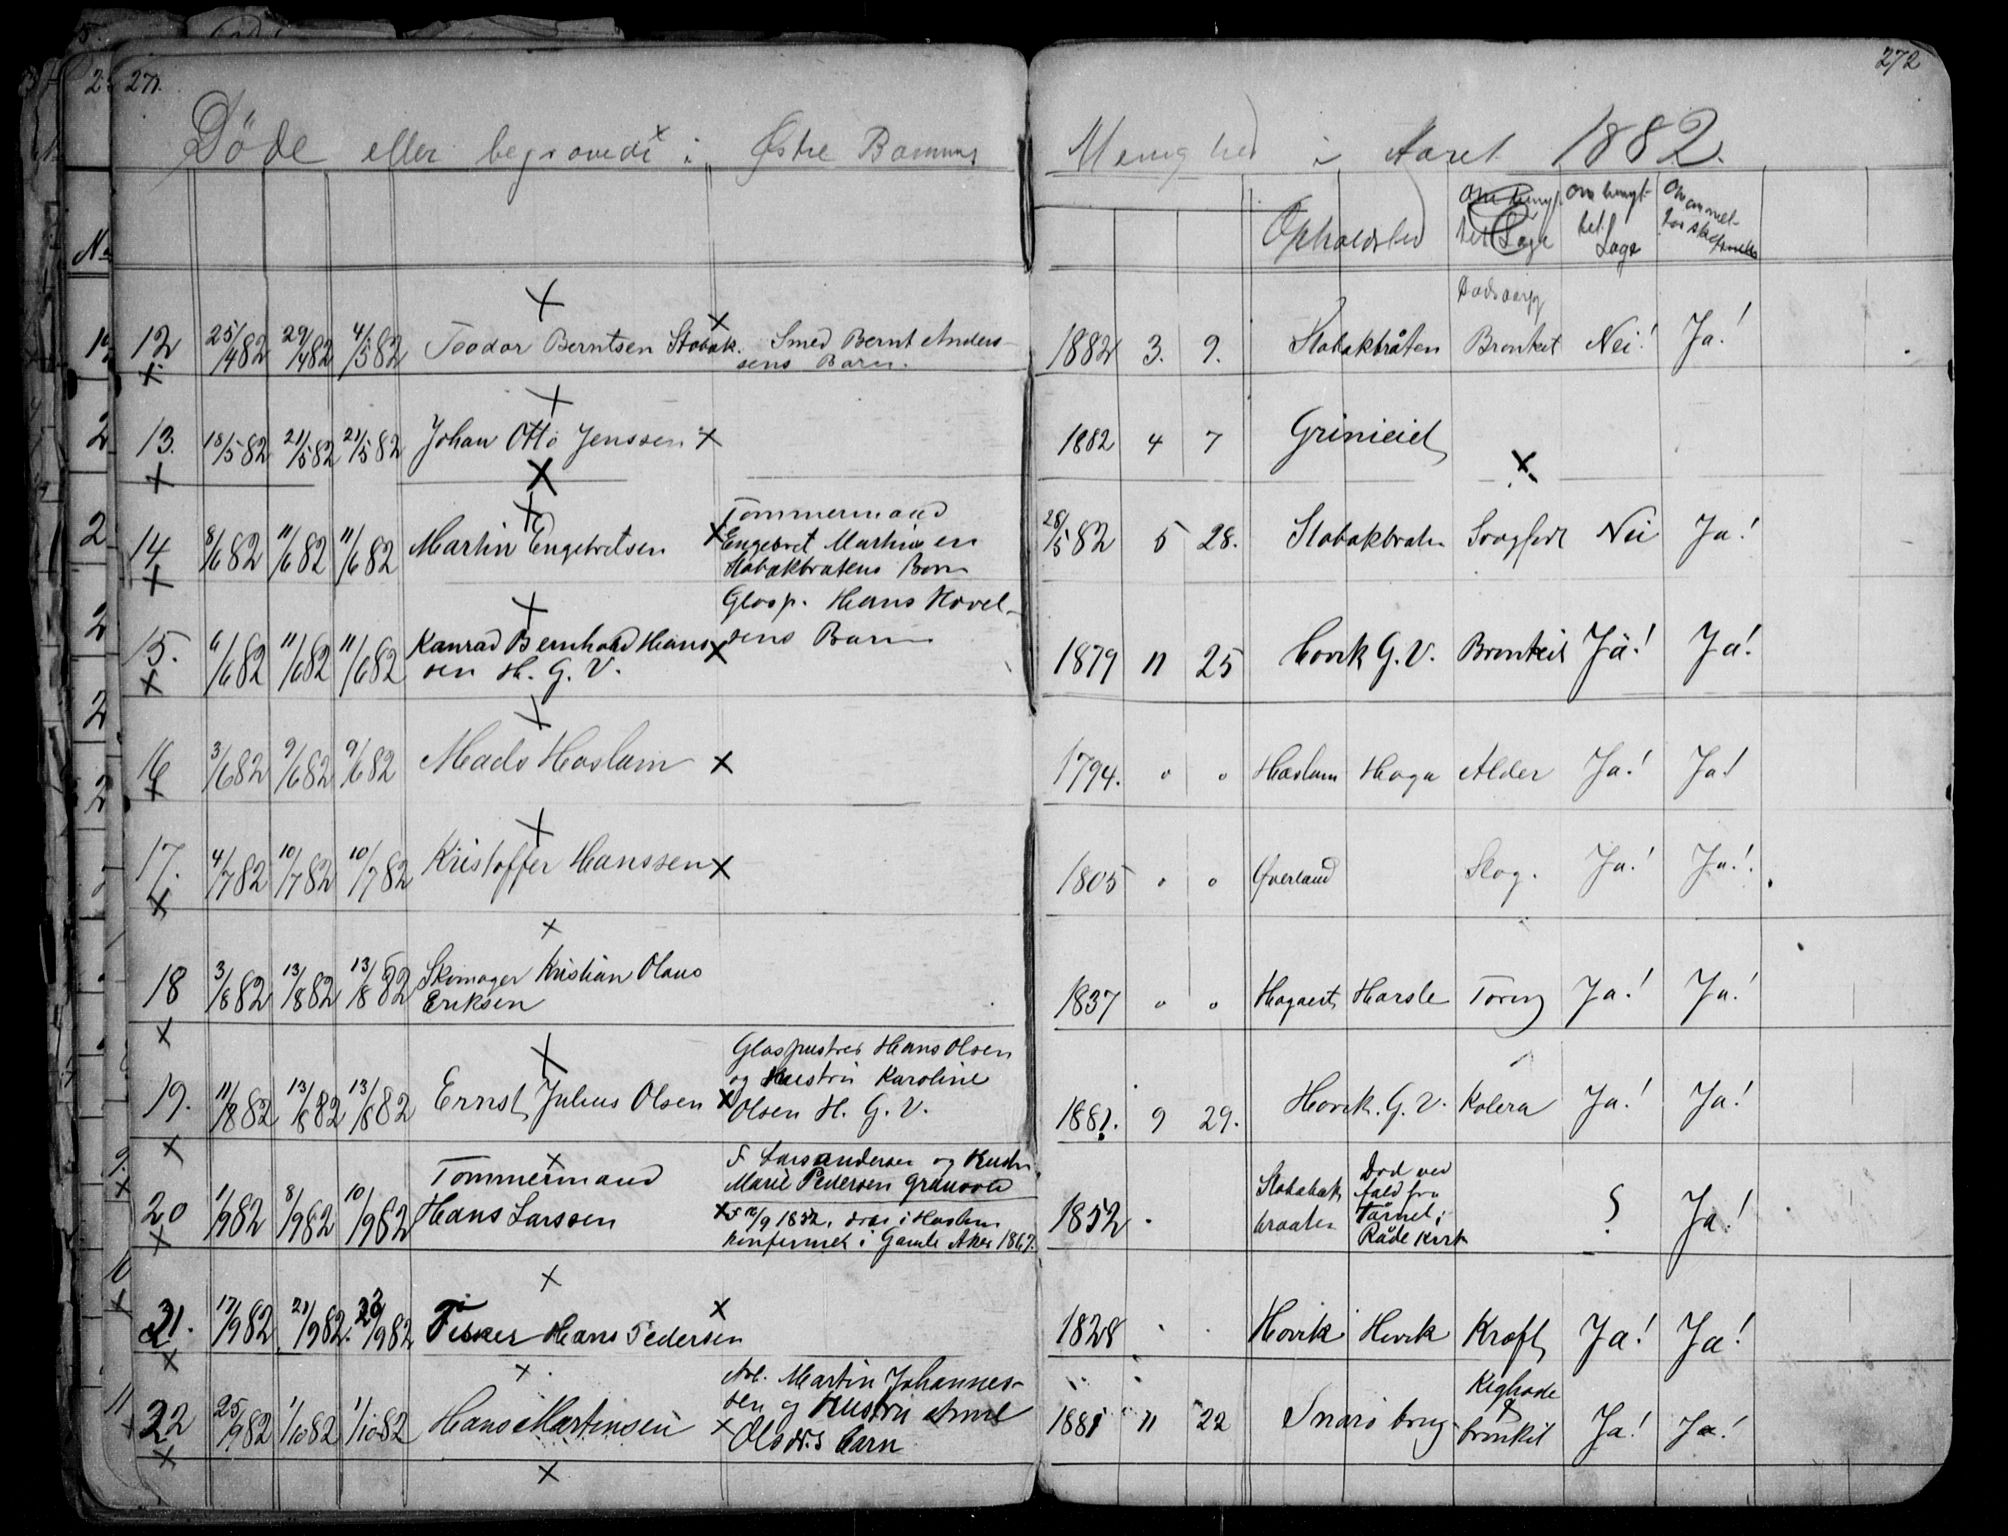 271.
272
Døde eller begravede i Østre Bærums
Menighed i Aaret 1882.
No
Opholdsted
Om beseyt
het Læge
Dødsaarsag
12 25/4 82 29/4 82 4/5 82 Teodor Berntsen Stabæk. Smed Bernt Anders-
sens Barn.
1882 3. 9. Stabækbråten Bronkit Nei! Ja!
13. 18/5 82 21/5 82 21/5 82 Johan Otto Jenssen
1882 4 7 Grinieiet
14 8/6 82 11/6 82 11/6 82 Martin Engebretsen
Tømmermand
Engebret Martinsen
Stabækbråtens Barn
28/5 82 5 28. Stabækbråten Nei Ja!
15. 6/6 82 11/6 82 11/6 82 Konrad Bernhard Hans
sen H. G. V.
Glasp. Hans Hovel-
sens Barn
1879 11 25 Hovik G. V. Bronkit Ja! Ja!
16 3/6 82 9/6 82 9/6 82 Mads Haslum
1794. " " Haslum Haga Alder Ja! Ja!
17. 4/7 82 10/7 82 10/7 82 Kristoffer Hanssen
1805 " " Øverland Slag. Ja! Ja!
18 3/8 82 13/8 82 13/8 82 Skomager Kristian Olaus
Eriksen
1837 " " Hagaeiet Harsle Tæring Ja! Ja!
19. 11/8 82 13/8 82 13/8 82 Ernst Julius Olsen
Glaspuster Hans Olsen
og Hustru Karoline
Olsen H. G. V.
1881. 9 29. Hovik. G. V. Kolera Ja! Ja!
20 1/9 82 8/9 82 10/9 82 Tømmermand
Hans Larssen
F Lars Andersen og Hustr
Marie Pedersen
/9 1852. døbt i Haslum
konfirmer i Gamle Aker 1867.
1852 Stababæk
braaten
Død ved
fald fra
Tårnet i
Råde Kirk
? Ja!
21. 17/9 82 21/9 82. 23/9 82 Fisker Hans Pedersen
1828 Hovik Hovik Kræft Ja! Ja!
22 25/9 82 1/10 82 1/10 82 Hans Martinsen
Arb. Martin Johannes-
sen og Hustru Anne
Olsdr.s barn
1881 11 22 Snarø brug Kighoste
bronkit Ja! Ja!